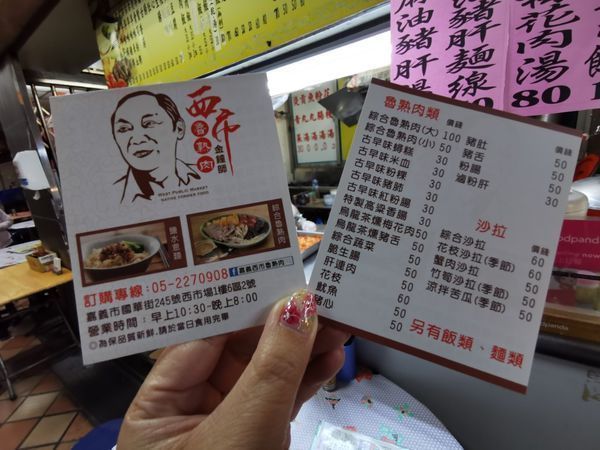 西市
魯熟肉
金鐘師
WEST PUBLIC MARKET
NATIVE FORMER FOOD
鹽水意麵
綜合魯熟肉
訂購專線：05-2270908
嘉義西市魯熟肉
嘉義市國華街245號西市場1樓6區2號
營業時間：早上10:30~晚上8:00
◎為保品質新鮮，請於當日食用完畢
魯熟肉類 價錢
綜合魯熟肉(大) 100
綜合魯熟肉(小) 50
古早味蟳糕 30
古早味米血 30
古早味粉粿 30
古早味豬肺 30
古早味紅粉腸 30
特製高粱香腸 30
烏龍茶燻梅花肉 50
烏龍茶燻豬舌 50
綜合蔬菜 50
脆生腸 50
肝連肉 50
花枝 60
魷魚 50
豬心 50
價錢
豬肚 50
豬舌 50
粉腸 50
滷粉肝 30
沙拉 價錢
綜合沙拉 60
花枝沙拉(季節) 60
蟹肉沙拉 60
竹筍沙拉(季節) 50
涼拌苦瓜(季節) 50
另有飯類、麵類
麻油豬肝
豬肝麵線
80
花肉湯
80
podpanda